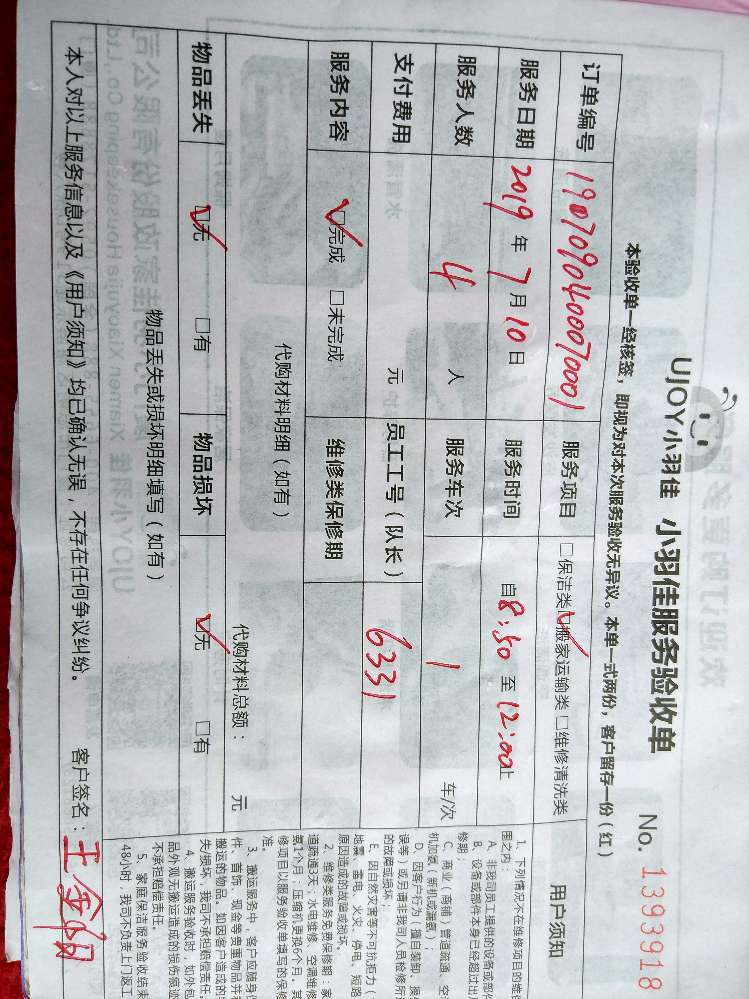 UJOY小羽佳 小羽佳服务验收单 No. 1393918
本验收单一经核签，即视为对本次服务验收无异议。本单一式两份，客户留存一份（红）
订单编号 1907090400070001 服务项目 □保洁类 ☑搬家运输类 □维修清洗类
服务日期 2019年7月10日 服务时间 自8:30至12:00止
服务人数 4 人 服务车次 1 车/次
支付费用 元 员工工号（队长） 6331
服务内容 ☑完成 □未完成 维修类保修期
代购材料明细（如有） 代购材料总额： 元
物品丢失 ☑无 □有 物品损坏 ☑无 □有
物品丢失或损坏明细填写（如有）
本人对以上服务信息以及《用户须知》均已确认无误，不存在任何争议纠纷。 客户签名：王金
用户须知
1、下列情况不在维修项目的维
围之内：
A、非我司员工提供的设备或部件
B、设备或部件本身已经超过出
修期；
C、商业（商铺）管道疏通、空
机加氟（新机或漏氟）；
D、因客户行为（擅自装卸、操
误等）或另请非我司人员检修所
的故障或损坏；
E、因自然灾害等不可抗拒力（
地震、雷电、火灾、停电、短路
原因造成的故障或损坏。
2、维修类服务免费保修期：家
道疏通3天；水电维修、空调维修
氟1个月；压缩机更换6个月，其
修项目以服务验收单填写的保修
准。
3、搬运服务中，客户应随身保
件、首饰、现金等贵重物品并
搬运的物品。如因客户造成的
失损坏，我司不承担赔偿责任。
4、搬运服务验收时，如外包
品外观无搬运造成的损伤痕迹
不承担赔偿责任。
5、家庭保洁服务验收结束
48小时，我司不负责上门返工